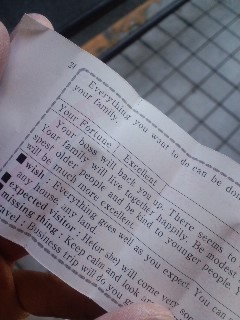 21
Everything you want to do can be don
your family.
Your Fortune Excellent
Your boss will back you up. There seems to
Your family will live together happily. Be modest
spest older people and be kind to younger people. Y
will be much more excellent.
■ wish : Everything goes well as you expect. You can
any house, any land.
■ expected visitor : He(or she) will come very soo
missing thing : Keep calm and look
avel : Business trip will do you